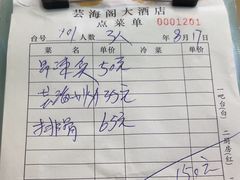 芸海阁大酒店
点菜单 0001201
台号 101 人数 3人 年 8月17日
菜名 单价 冷菜 单价
50元
芸海小炒 35元
排骨 65元
150元
一吧台(白)
二厨房(红)